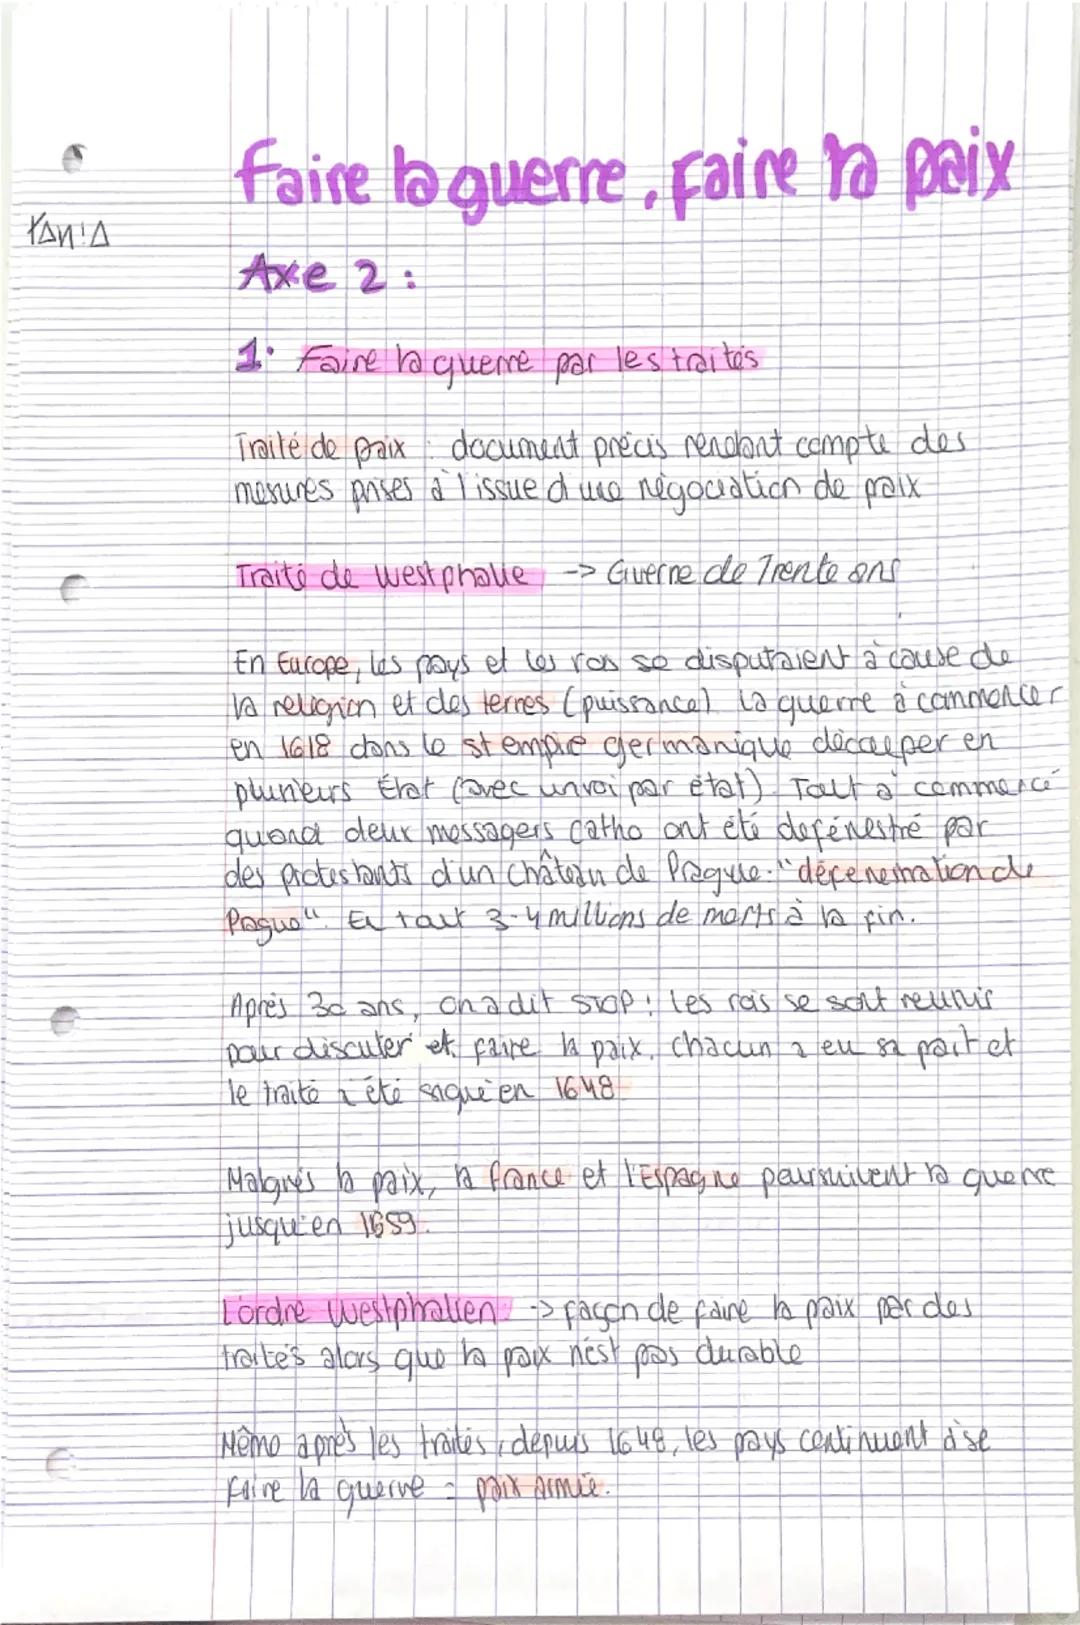 Faire la guerre, Faire la paix
tAn!A
Axe 2 :
1. Faire la guerre par les traités
Traité de paix : document précis rendant compte des
mesures prises à l'issue d'une négociation de paix
Traité de Westphalie -> Guerre de Trente ans
En Europe, les pays et les rois se disputaient à cause de
la religion et des terres (puissance). La guerre à commencer
en 1618 dans le st empire germanique découper en
plusieurs État (avec un roi par état). Tout à commencé
quand deux messagers catho ont été defénestré par
des protestants d'un château de Prague: "défenestration de
Prague". En tout 3-4 millions de morts à la fin.
Après 30 ans, on a dit STOP! Les rois se sont reunis
pour discuter et faire la paix, chacun a eu sa part et
le traité a été signé en 1648
Malgrés la paix, la france et l'Espagne poursuivent la guerre
jusqu'en 1659.
L'ordre westphalien -> façon de faire la paix par des
traités alors que la paix n'est pas durable
Même après les traités, depuis 1648, les pays continuent à se
faire la guerre = paix armée.